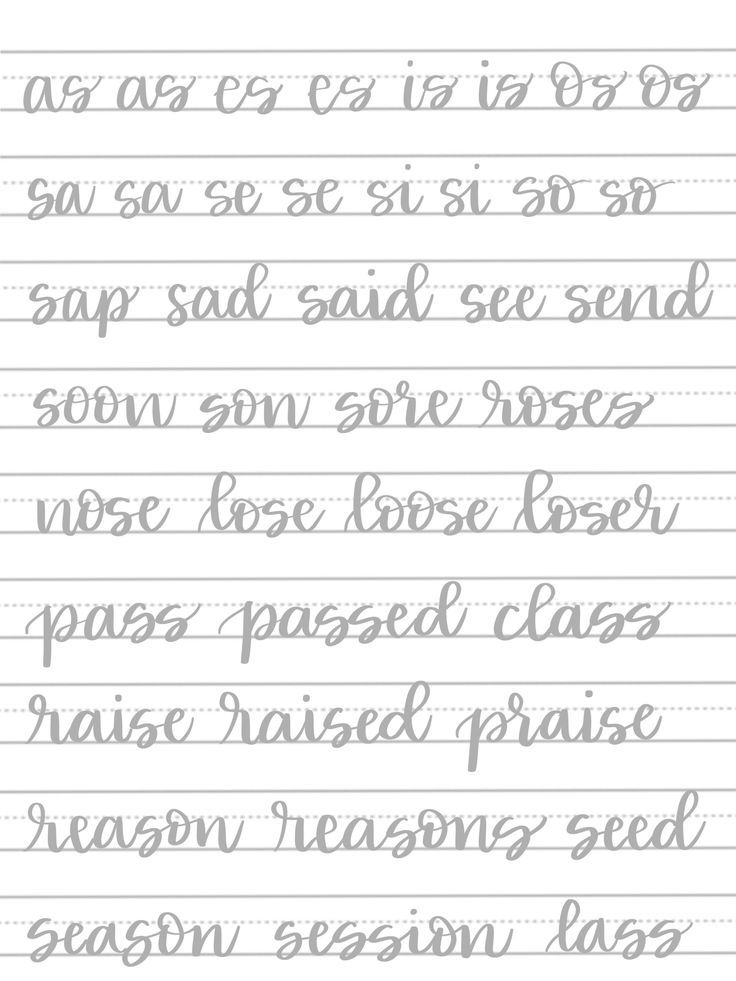 as as es es is is os os
sa sa se se si si so so
sap sad said see send
soon son sore roses
nose lose loose loser
pass passed class
raise raised praise
reason reasons seed
season session lass